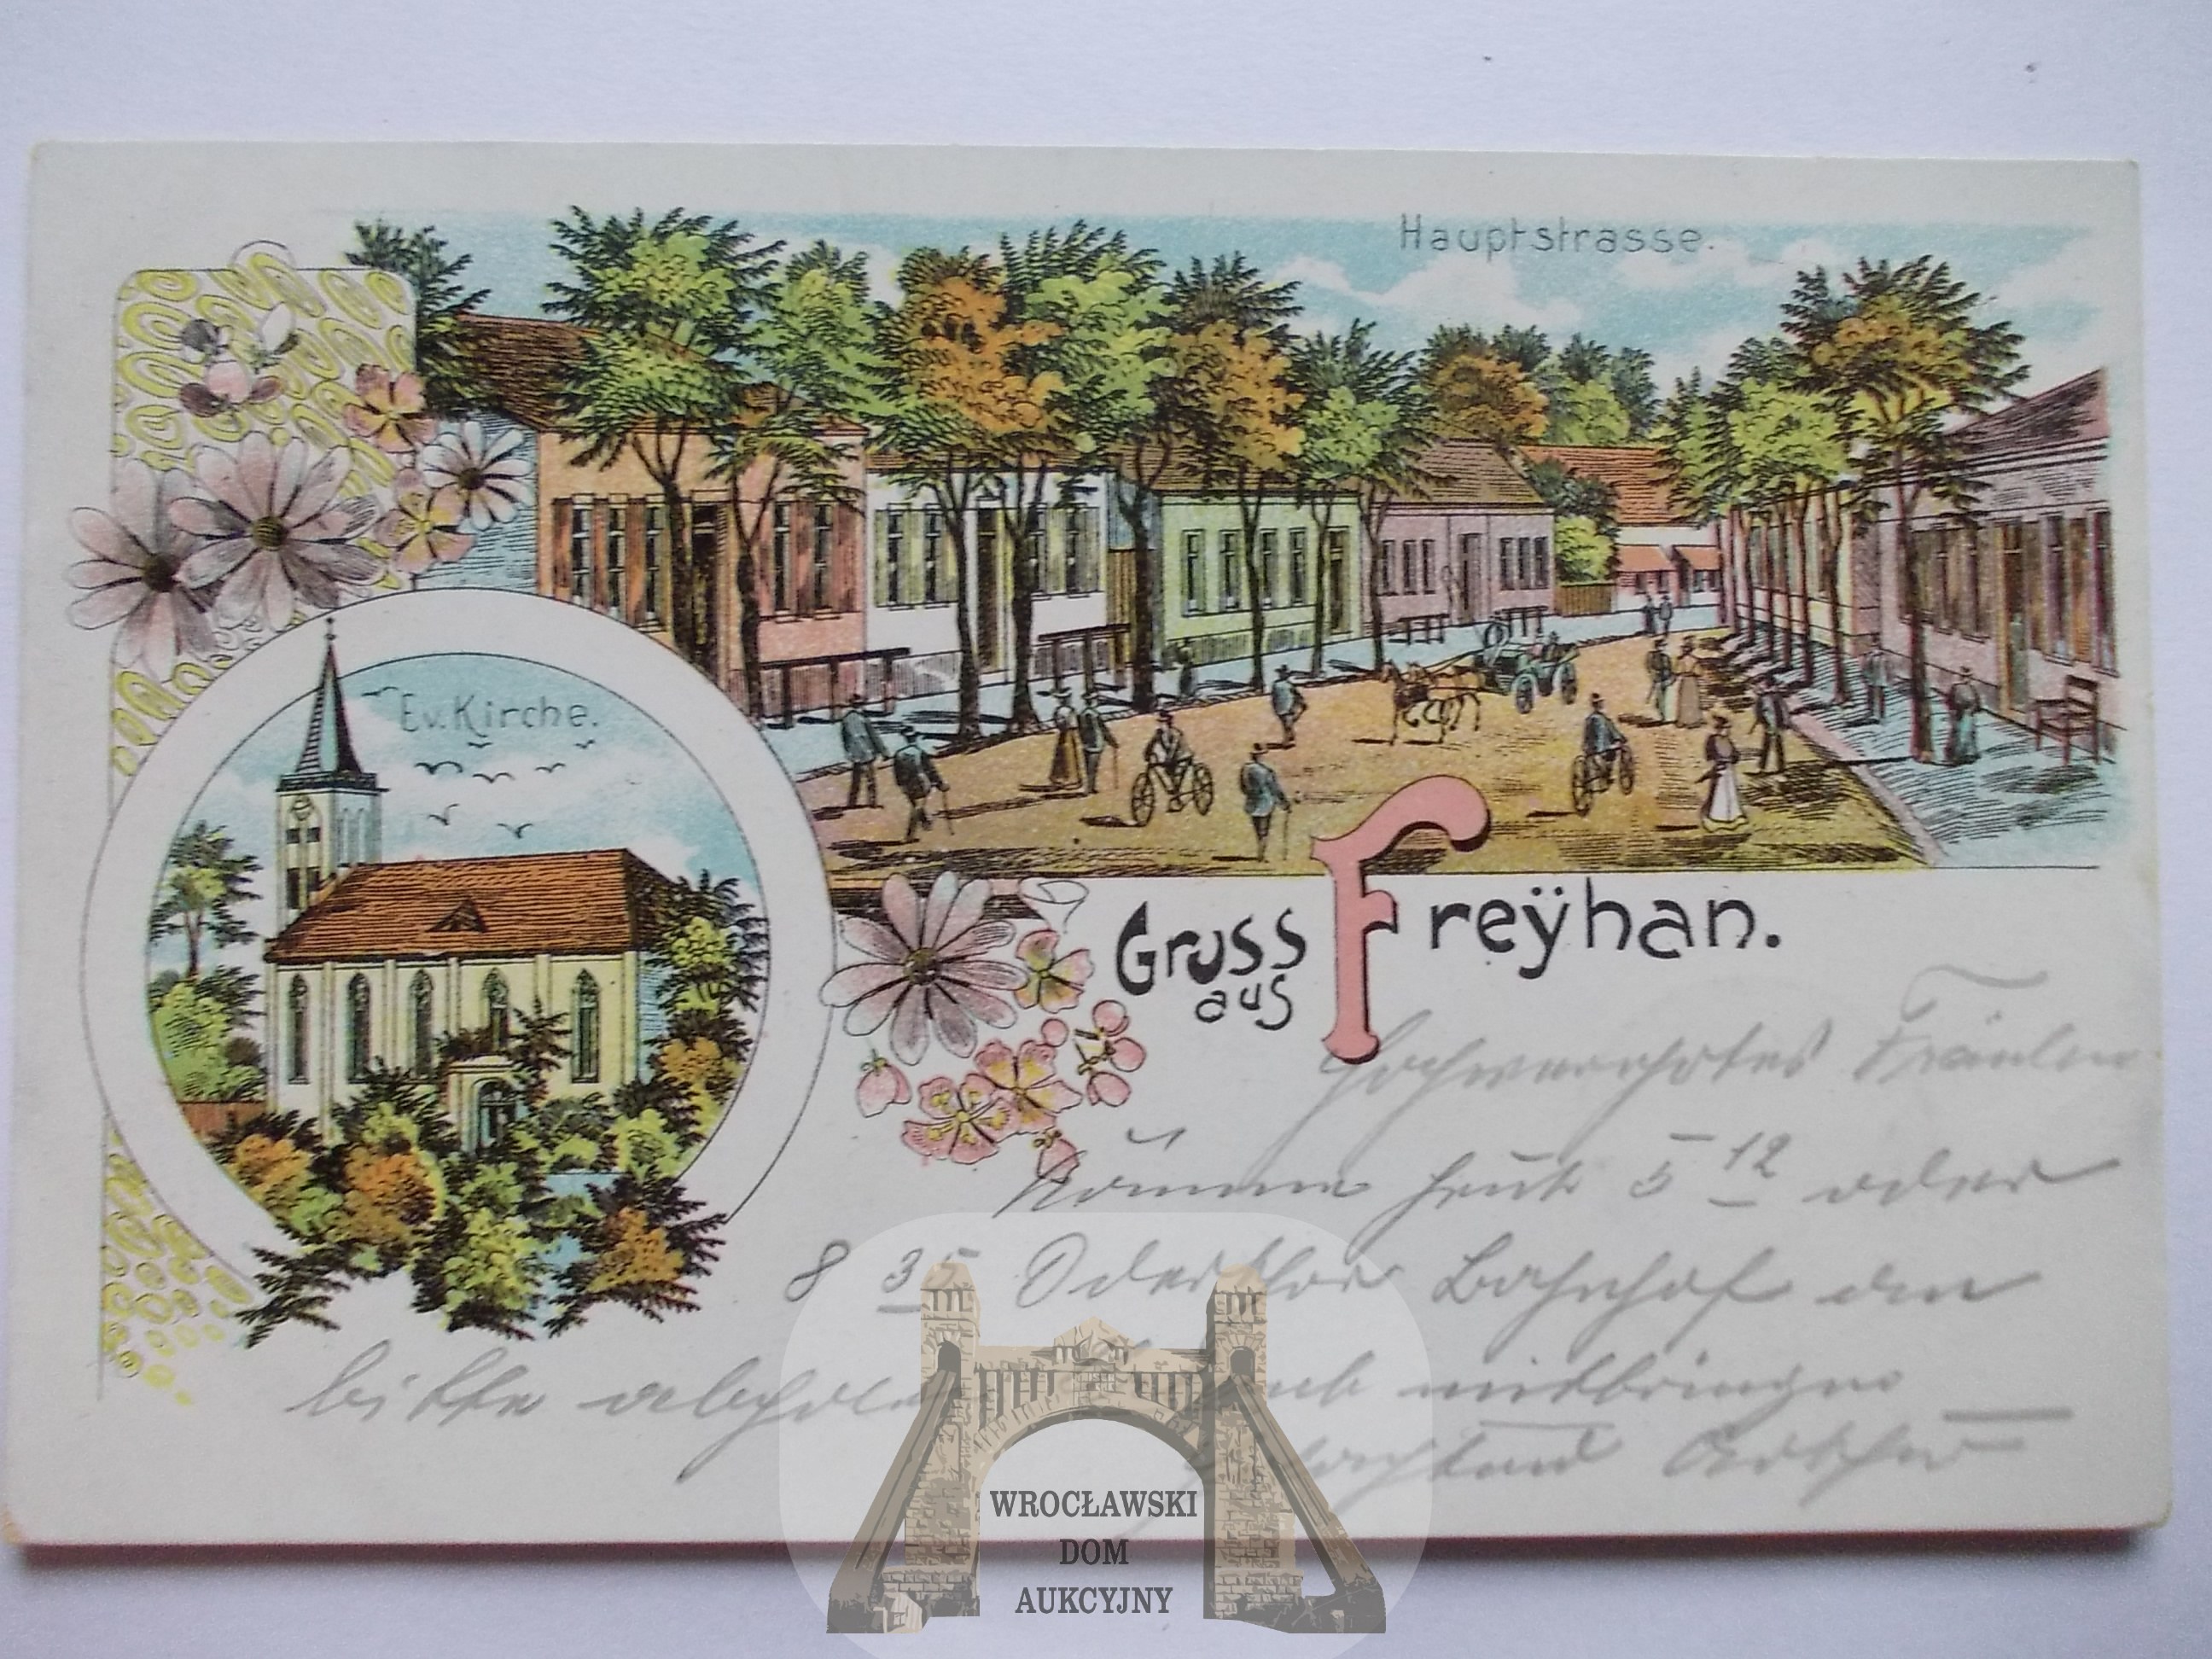 Hauptstrasse.
Ev. Kirche.
Gruss
aus
Freÿhan.
Hochverehrtes Fräulein
Komme heut 5 12 oder
8 35 Oderthor Bahnhof an
bitte abholen mitbringen
WROCŁAWSKI
DOM
AUKCYJNY